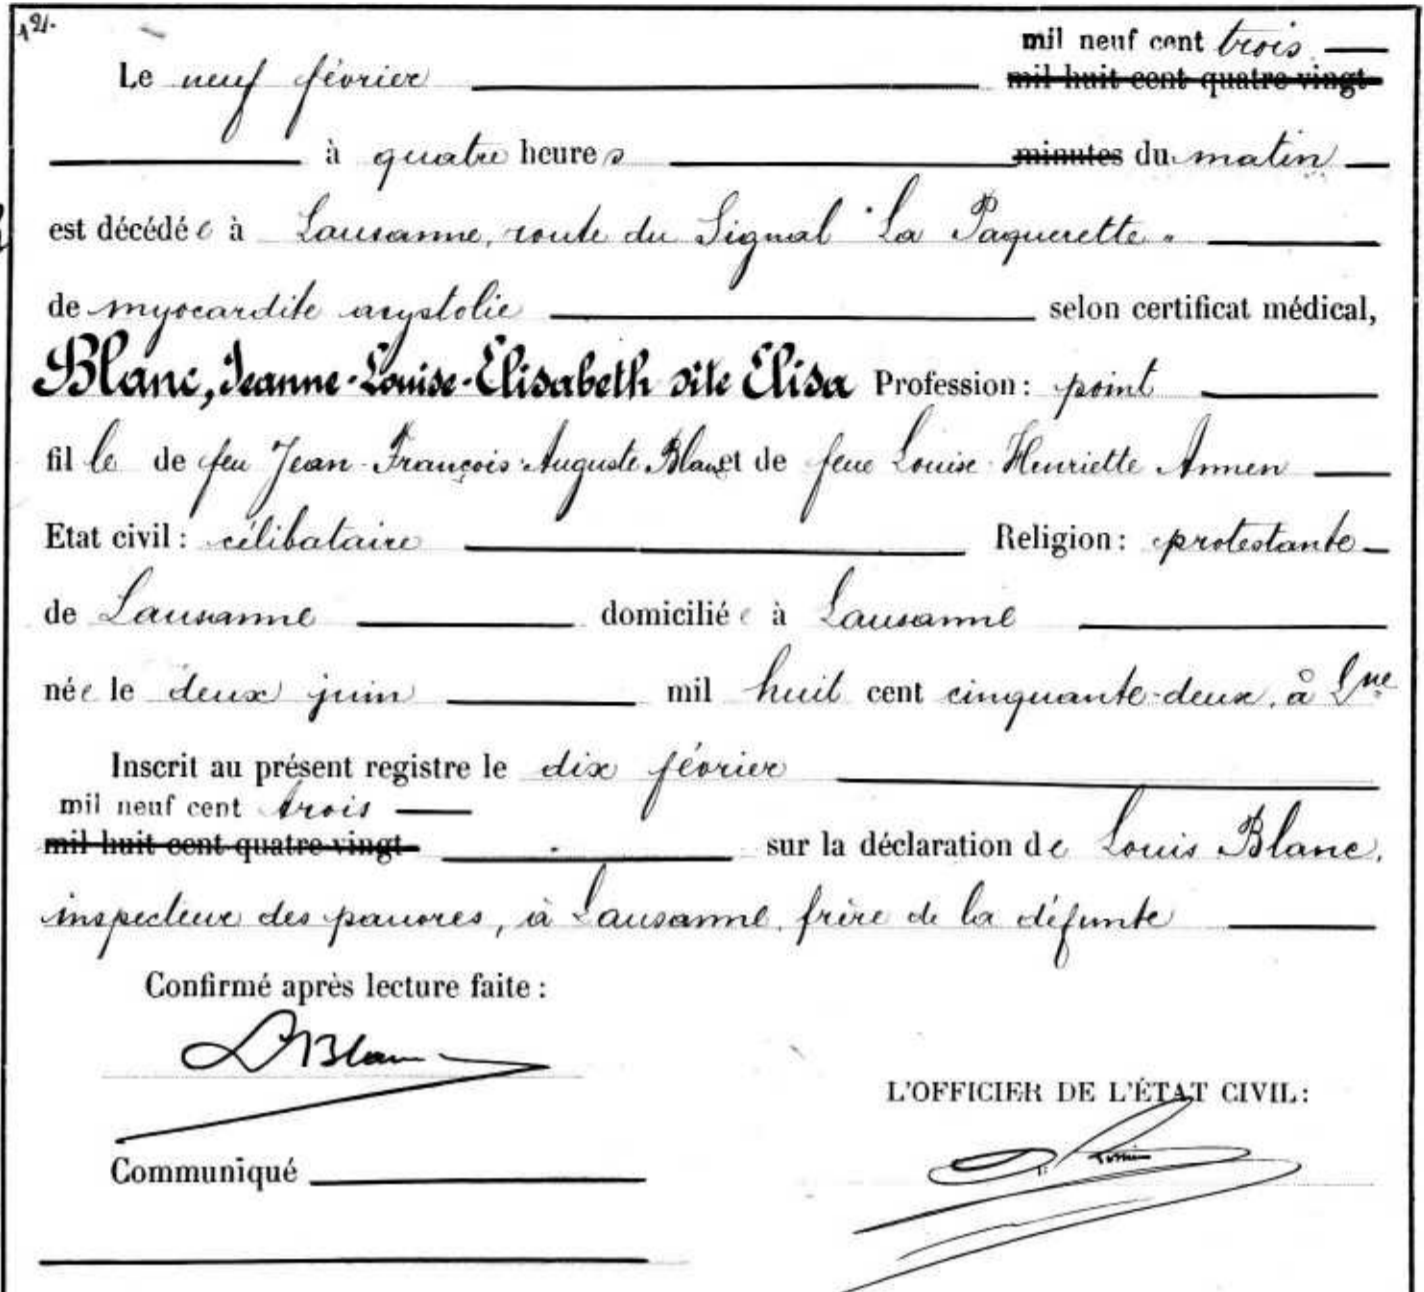 121.
mil neuf cent trois
Le neuf février mil huit cent quatre-vingt
à quatre heures minutes du matin
est décédée à Lausanne, route du Signal "La Paquerette"
de myocardite asystolie selon certificat médical,
Blanc, Jeanne-Louise-Elisabeth dite Elisa Profession: point
fille de feu Jean-François-Auguste Blanc et de feue Louise-Henriette Annen
Etat civil: célibataire Religion: protestante
de Lausanne domiciliée à Lausanne
née le deux juin mil huit cent cinquante-deux, à Lne
Inscrit au présent registre le dix février
mil neuf cent trois
mil huit cent quatre-vingt sur la déclaration de Louis Blanc,
inspecteur des pauvres, à Lausanne, frère de la défunte
Confirmé après lecture faite:
L Blanc
L'OFFICIER DE L'ÉTAT CIVIL:
Communiqué